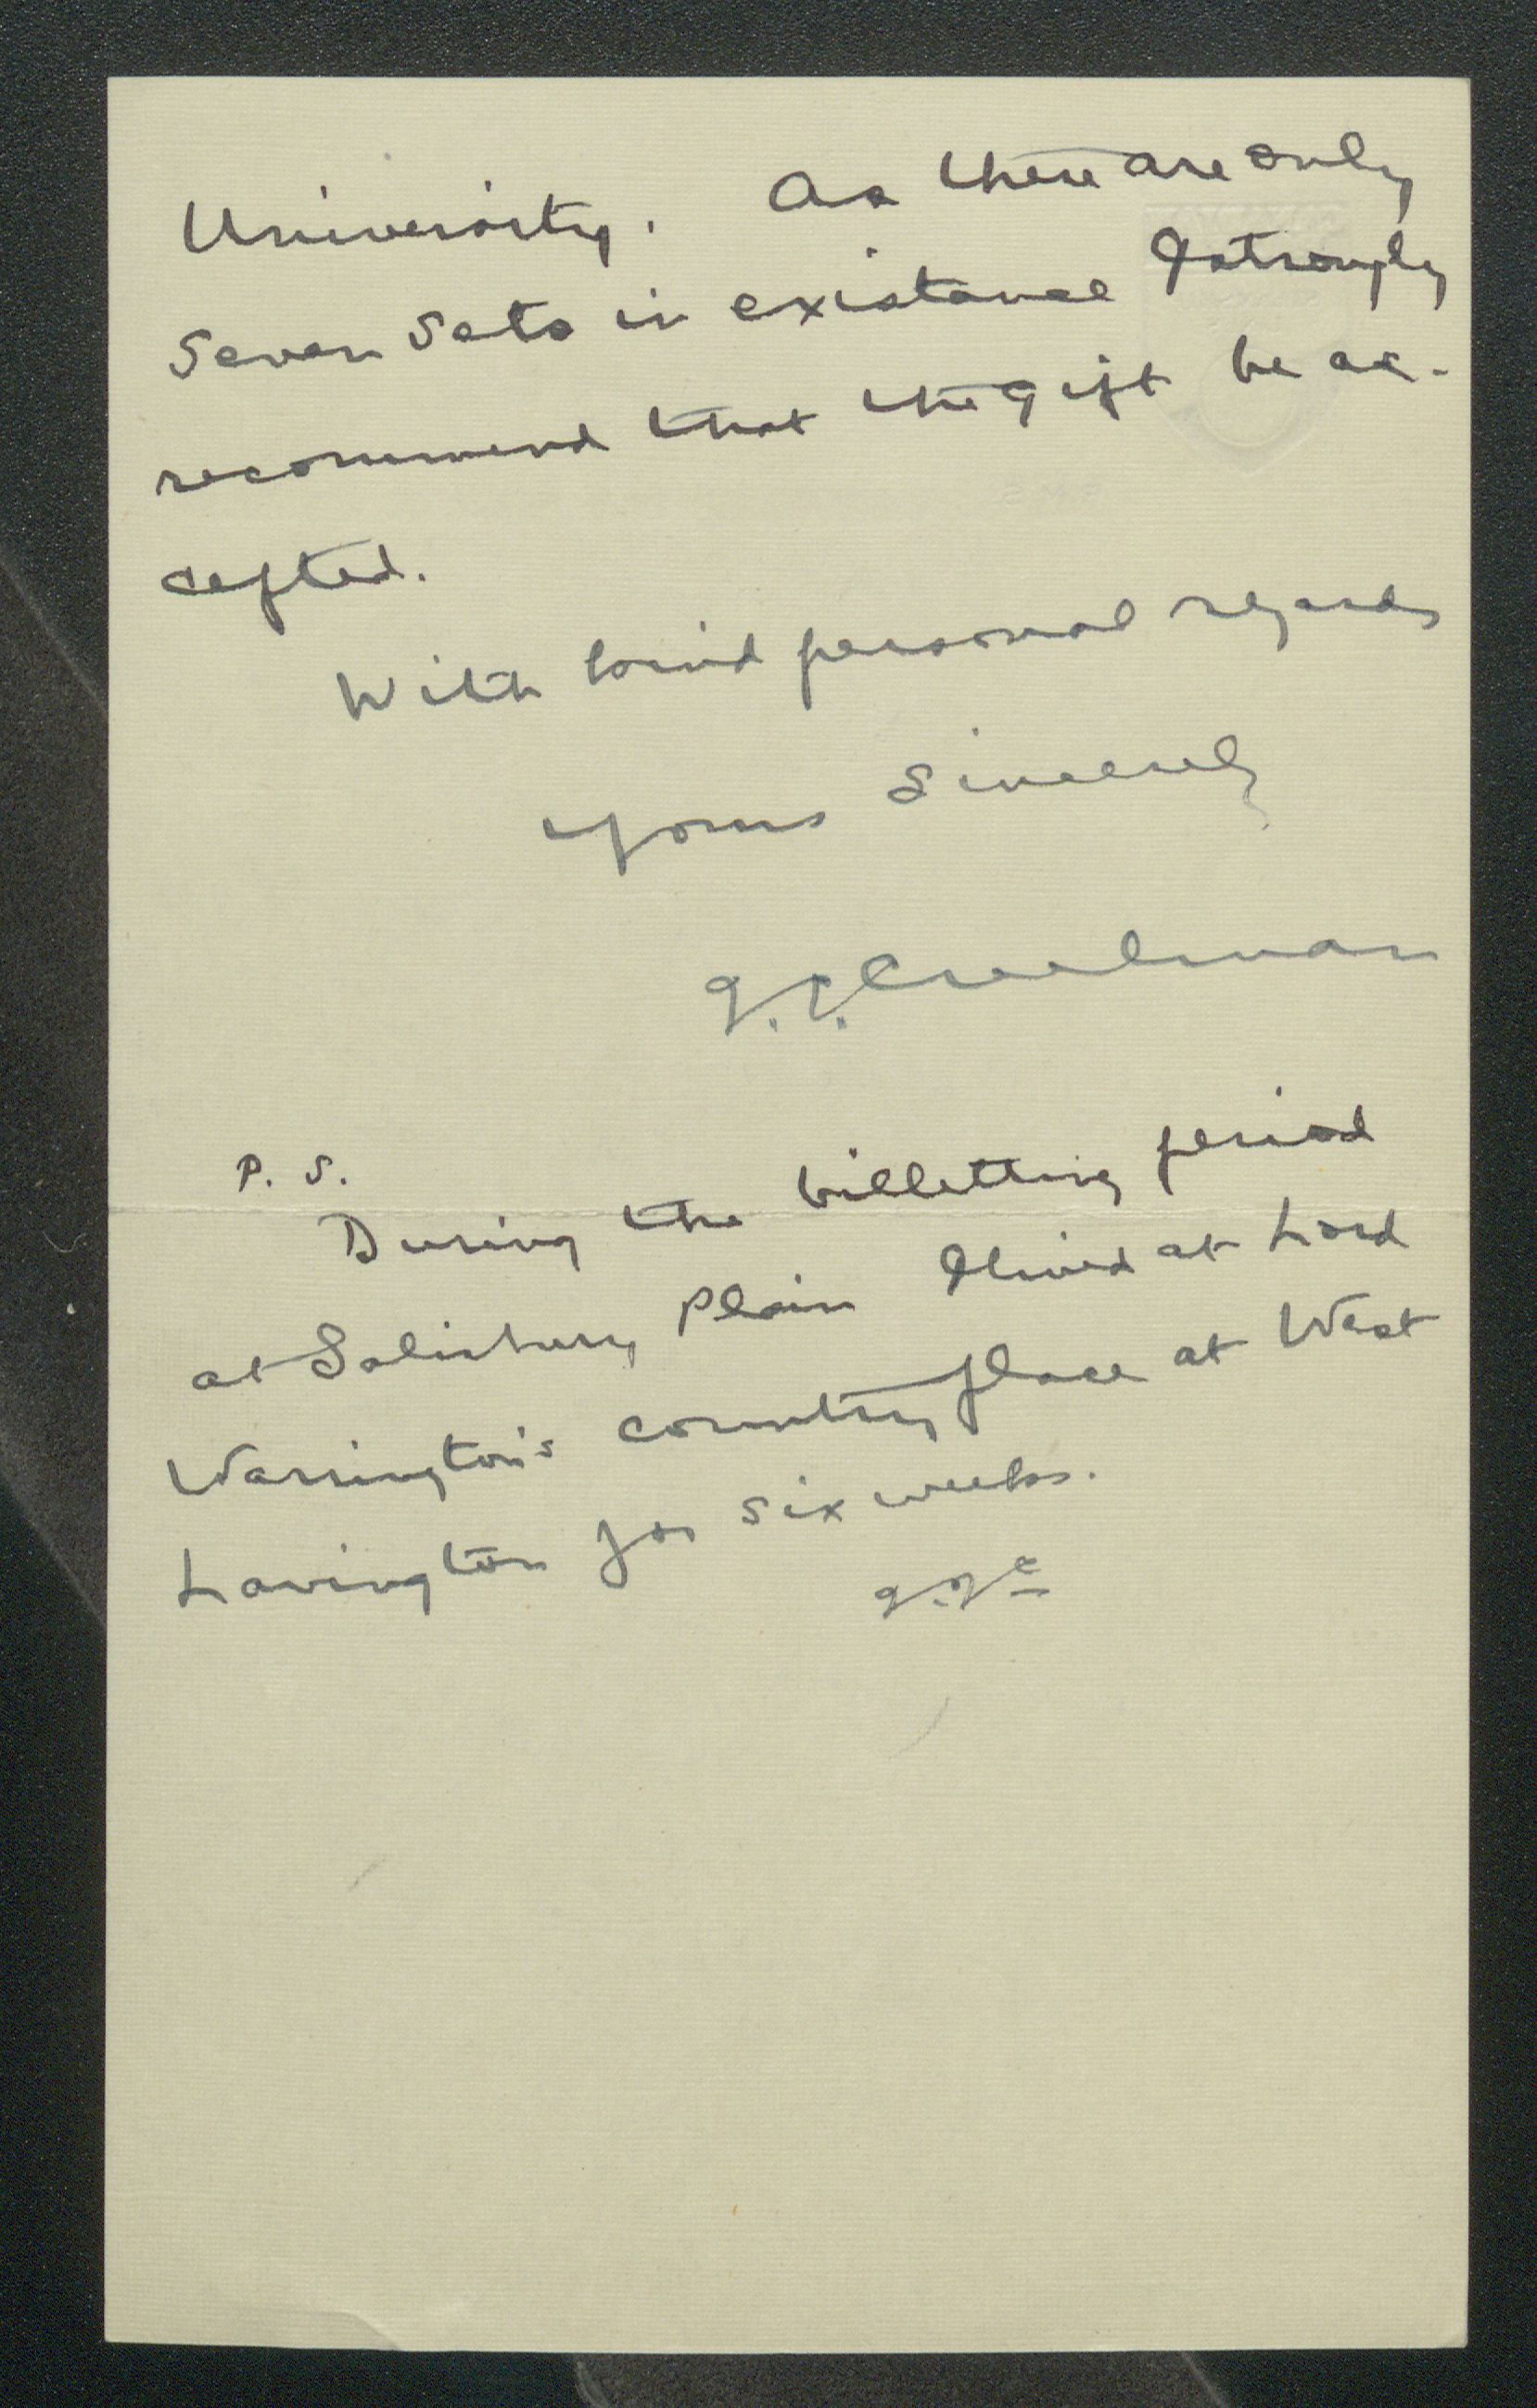 University. As there are only
seven sets in existance I strongly
recommend that the gift be ac-
cepted.
With kind personal regards
Yours Sincerely
J.J. Creelman
P. S.
During the billetting period
at Salisbury Plain I lived at Lord
Warrington's country place at West
Lavington for six weeks.
J.J.C